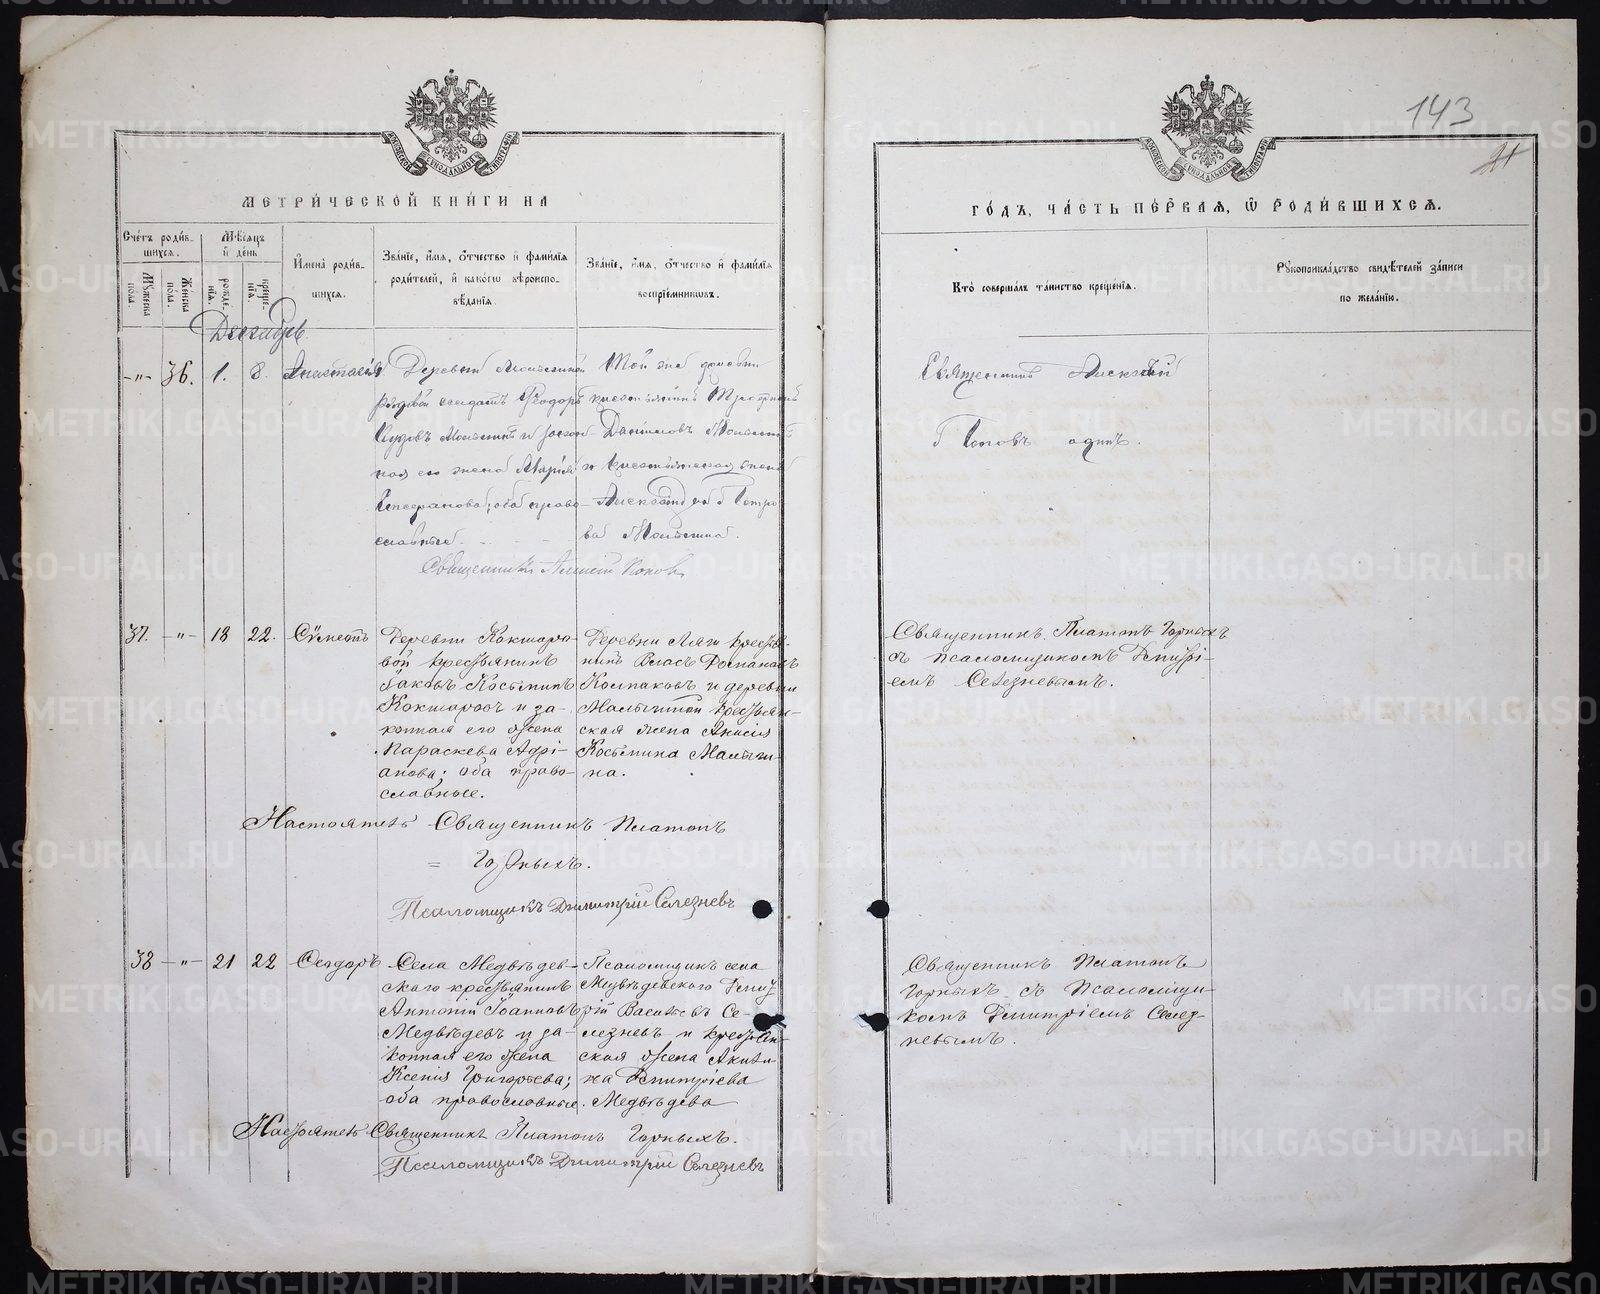 143
МЕТРИ́ЧЕСКОЙ КНИ́ГИ НА
ГО́ДЪ, ЧА́СТЬ ПЕ́РВАЯ, Ѡ РОДИ́ВШИХСЯ.
Сче́тъ роди́в-
шихся.
Мѣ́сяцъ
и҆ де́нь
Му́жеска
по́ла.
Же́нска
по́ла.
рожде́-
нїя.
креще́-
нїя.
И҆мена̀ роди́в-
шихся.
Зва́нїе, и҆́мя, ѻ҆́тчество и҆ фами́лїя
роди́телей, и҆ како́гѡ вѣроиспо-
вѣ́данїя.
Зва́нїе, и҆́мя, ѻ҆́тчество и҆ фами́лїя
воспрїе́мникѡвъ.
Кто̀ соверша́лъ та́инство креще́нїя.
Рꙋкоприкла́дство свидѣ́телей за́писи
по жела́нїю.
Декабрь
-„- 36. 1. 8. Анастасія
Деревни
рядовой солдатъ Ѳеодоръ
ная его жена Марія
оба право-
славные
Той же деревни
крестьянинъ
Даниловъ
и крестьянская жена
Александра Петро-
ва
Священникъ Алексій Поповъ
Священникъ Алексій
Поповъ одинъ.
37. -„- 18 22. Сѷмеонъ
Деревни Кокшаро-
вой крестьянинъ
Іаковъ Косьминъ
Кокшаровъ и за-
конная его жена
Параскева Адрі-
анова; оба право-
славные.
Деревни Ляги крестья-
нинъ Власъ
Колпаковъ и деревни
Малыгиной крестьян-
ская жена Анисія
Косьмина Малыги-
на.
Священникъ Платонъ Горныхъ
съ псаломщикомъ Димитрі-
емъ Селезневымъ.
Настоятель Священникъ Платонъ
= Горныхъ.
Псаломщикъ Димитрій Селезневъ
38 -„- 21 22 Ѳеодоръ
Села Медвѣдев-
скаго крестьянинъ
Антоній Іоанновъ
Медвѣдевъ и за-
конная его жена
Ксенія Григорьева;
оба православные.
Псаломщикъ села
Медвѣдевскаго Димит-
рій Васильевъ Се-
лезневъ и крестьян-
ская жена Акили-
на Димитріева
Медвѣдева
Священникъ Платонъ
Горныхъ съ Псаломщи-
комъ Димитріемъ Селез-
невымъ.
Настоятель Священникъ Платонъ Горныхъ.
Псаломщикъ Димитрій Селезневъ
METRIKI.GASO-URAL.RU